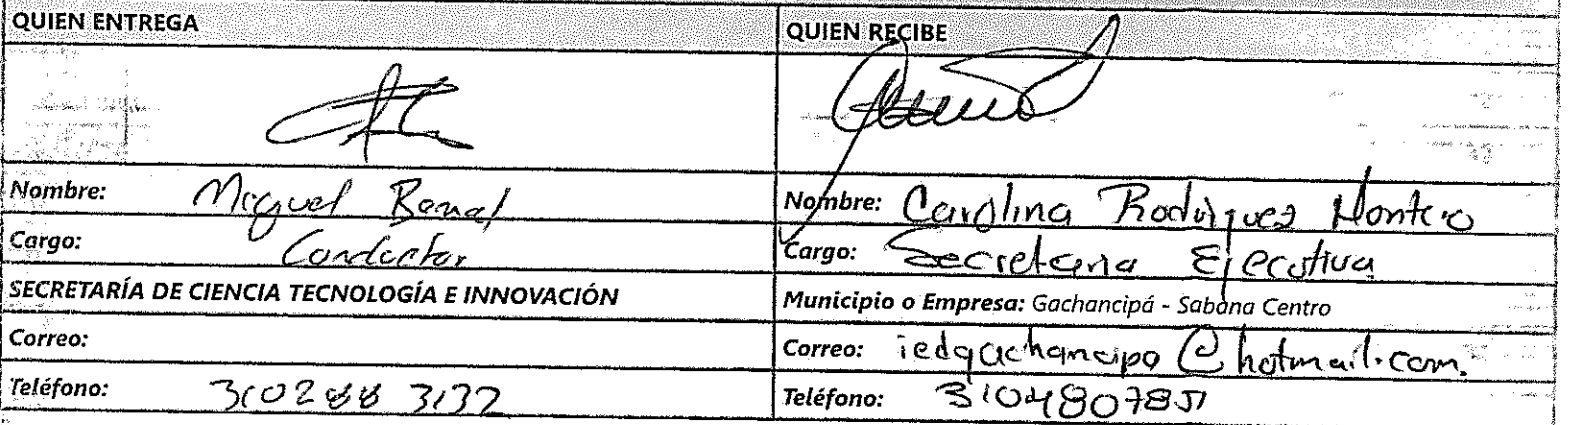 QUIEN ENTREGA
QUIEN RECIBE
Nombre: Miguel Bernal
Nombre: Carolina Rodriguez Montero
Cargo: Conductor
Cargo: Secretaria Ejecutiva
SECRETARÍA DE CIENCIA TECNOLOGÍA E INNOVACIÓN
Municipio o Empresa: Gachancipá - Sabana Centro
Correo:
Correo: iedgachancipa@hotmail.com.
Teléfono: 3102883132
Teléfono: